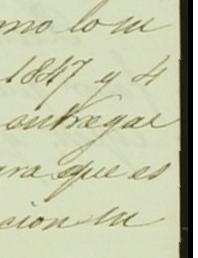 mo lo su
1847 y 4
entregar
ara que es
cion su